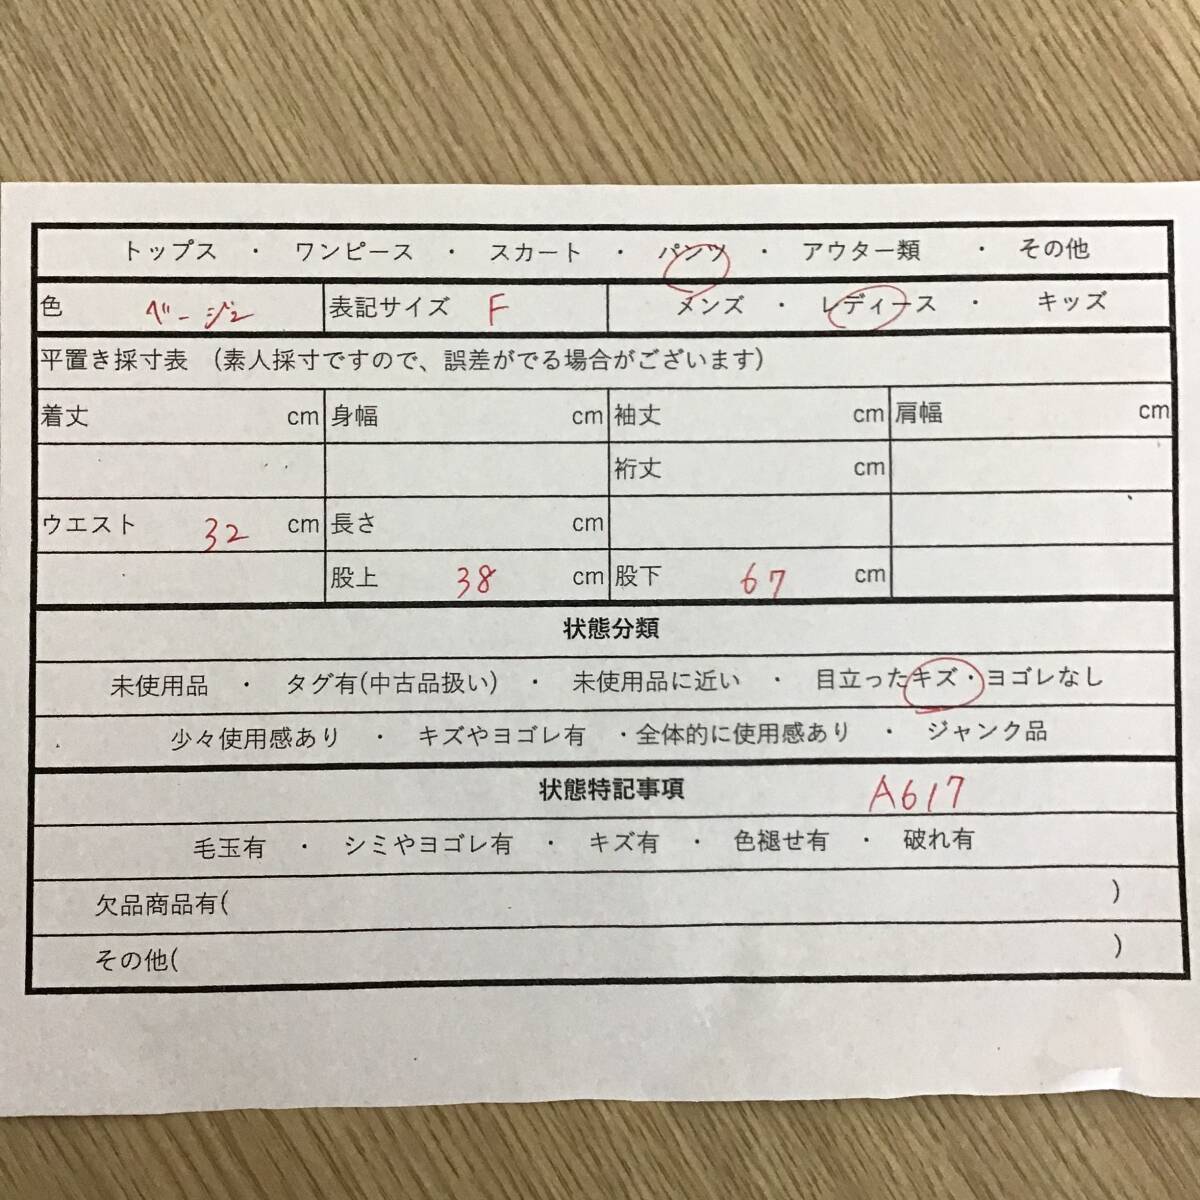 トップス ・ ワンピース ・ スカート ・ パンツ ・ アウター類 ・ その他
色 ベージュ 表記サイズ F メンズ ・ レディース ・ キッズ
平置き採寸表 (素人採寸ですので、誤差がでる場合がございます)
着丈 cm 身幅 cm 袖丈 cm 肩幅 cm
裄丈 cm
ウエスト 32 cm 長さ cm
股上 38 cm 股下 67 cm
状態分類
未使用品 ・ タグ有(中古品扱い) ・ 未使用品に近い ・ 目立ったキズ・ヨゴレなし
少々使用感あり ・ キズやヨゴレ有 ・全体的に使用感あり ・ ジャンク品
状態特記事項 A617
毛玉有 ・ シミやヨゴレ有 ・ キズ有 ・ 色褪せ有 ・ 破れ有
欠品商品有( )
その他( )